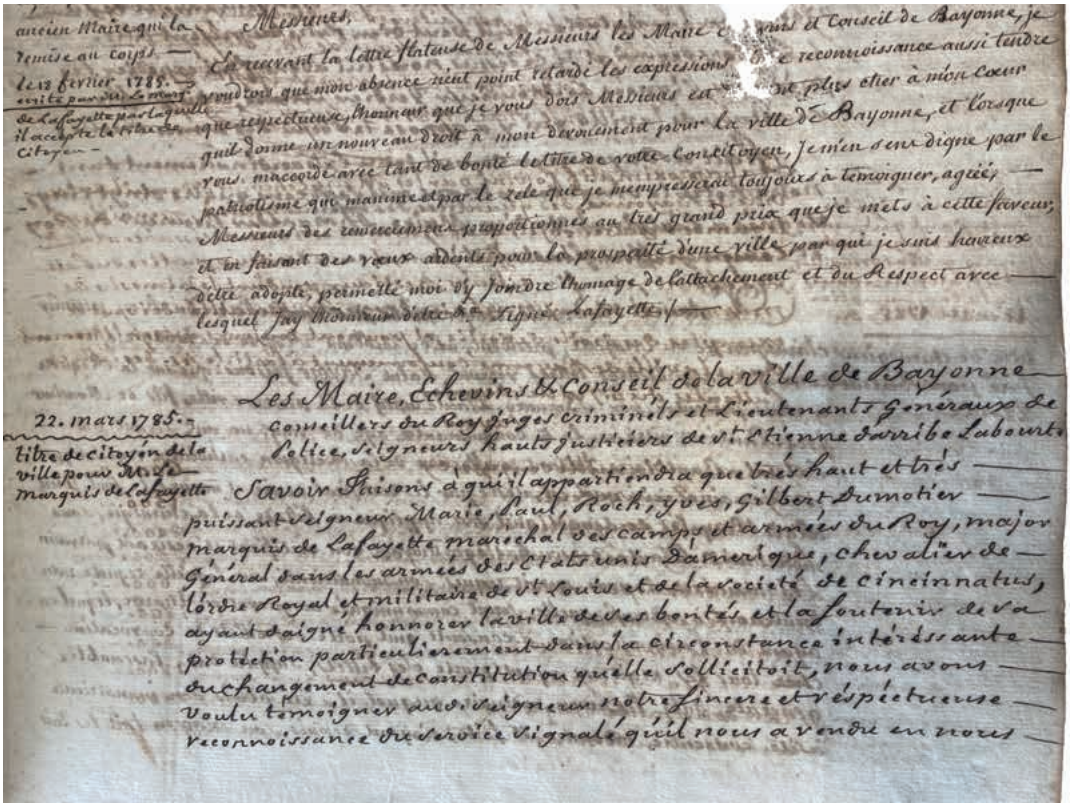 ancien Maire qui la
remise au corps —
le 18 fevrier 1785. —
ecrite par M. Le marq.
de Lafayette par laquelle
il accepte le titre de
Citoyen —
Messieurs,
En recevant la lettre flateuse de Messieurs les Maire et Conseil de Bayonne, je
voudrois que mon absence n'eut point retardé les expressions reconnoissance aussi tendre
que respectueuse, lhonneur que je vous dois Messieurs est plus cher à mon cœur
quil donne un nouveau droit à mon devouement pour la ville de Bayonne, et lorsque
vous maccordé avec tant de bonté le titre de votre Concitoyen, Jem'en sens digne par le
patriotisme qui manime et par le zele que je m'empresserai toujours à temoigner, agréé, —
Messieurs des remerciemens proportionnés au tres grand prix que je mets à cette faveur,
et en faisant des vœux ardents pour la prosperité d'une ville par qui je suis heureux
detre adopté, permetté moi d'y Joindre lhomage de l'attachement et du Respect avec —
lesquel Jay lhonneur detre Signé Lafayette /. —
Les Maire, Echevins & Conseil de la ville de Bayonne —
conseillers du Roy juges criminéls et Lieutenants Généraux de
Police, seigneurs hauts justiciers de St. Etienne darribe Labourt.
22. mars 1785. —
titre de citoyén de la
ville pour M. Le —
marquis de Lafayette
Savoir Faisons à qui il appartiendra que trés haut et trés —
puissant seigneur Marie, Paul, Roch, yves, Gilbert Dumotier —
marquis de Lafayette maréchal des camps et armées du Roy, major
Général dans les armées des Etats unis Damerique, chevalier de —
lórdre Royal et militaire de St. Louis et de la societé de cincinnatus,
ayant daigné honnorer la ville de ses bontés et la soutenir de sa
protection particulierement dans la circonstance intéréssante —
du changement de constitution qu'elle sollicitoit, nous avons —
voulu témoigner audi seigneur notre sincere et réspéctueuse —
reconnoissance du service signalé qu'il nous a rendu en nous —